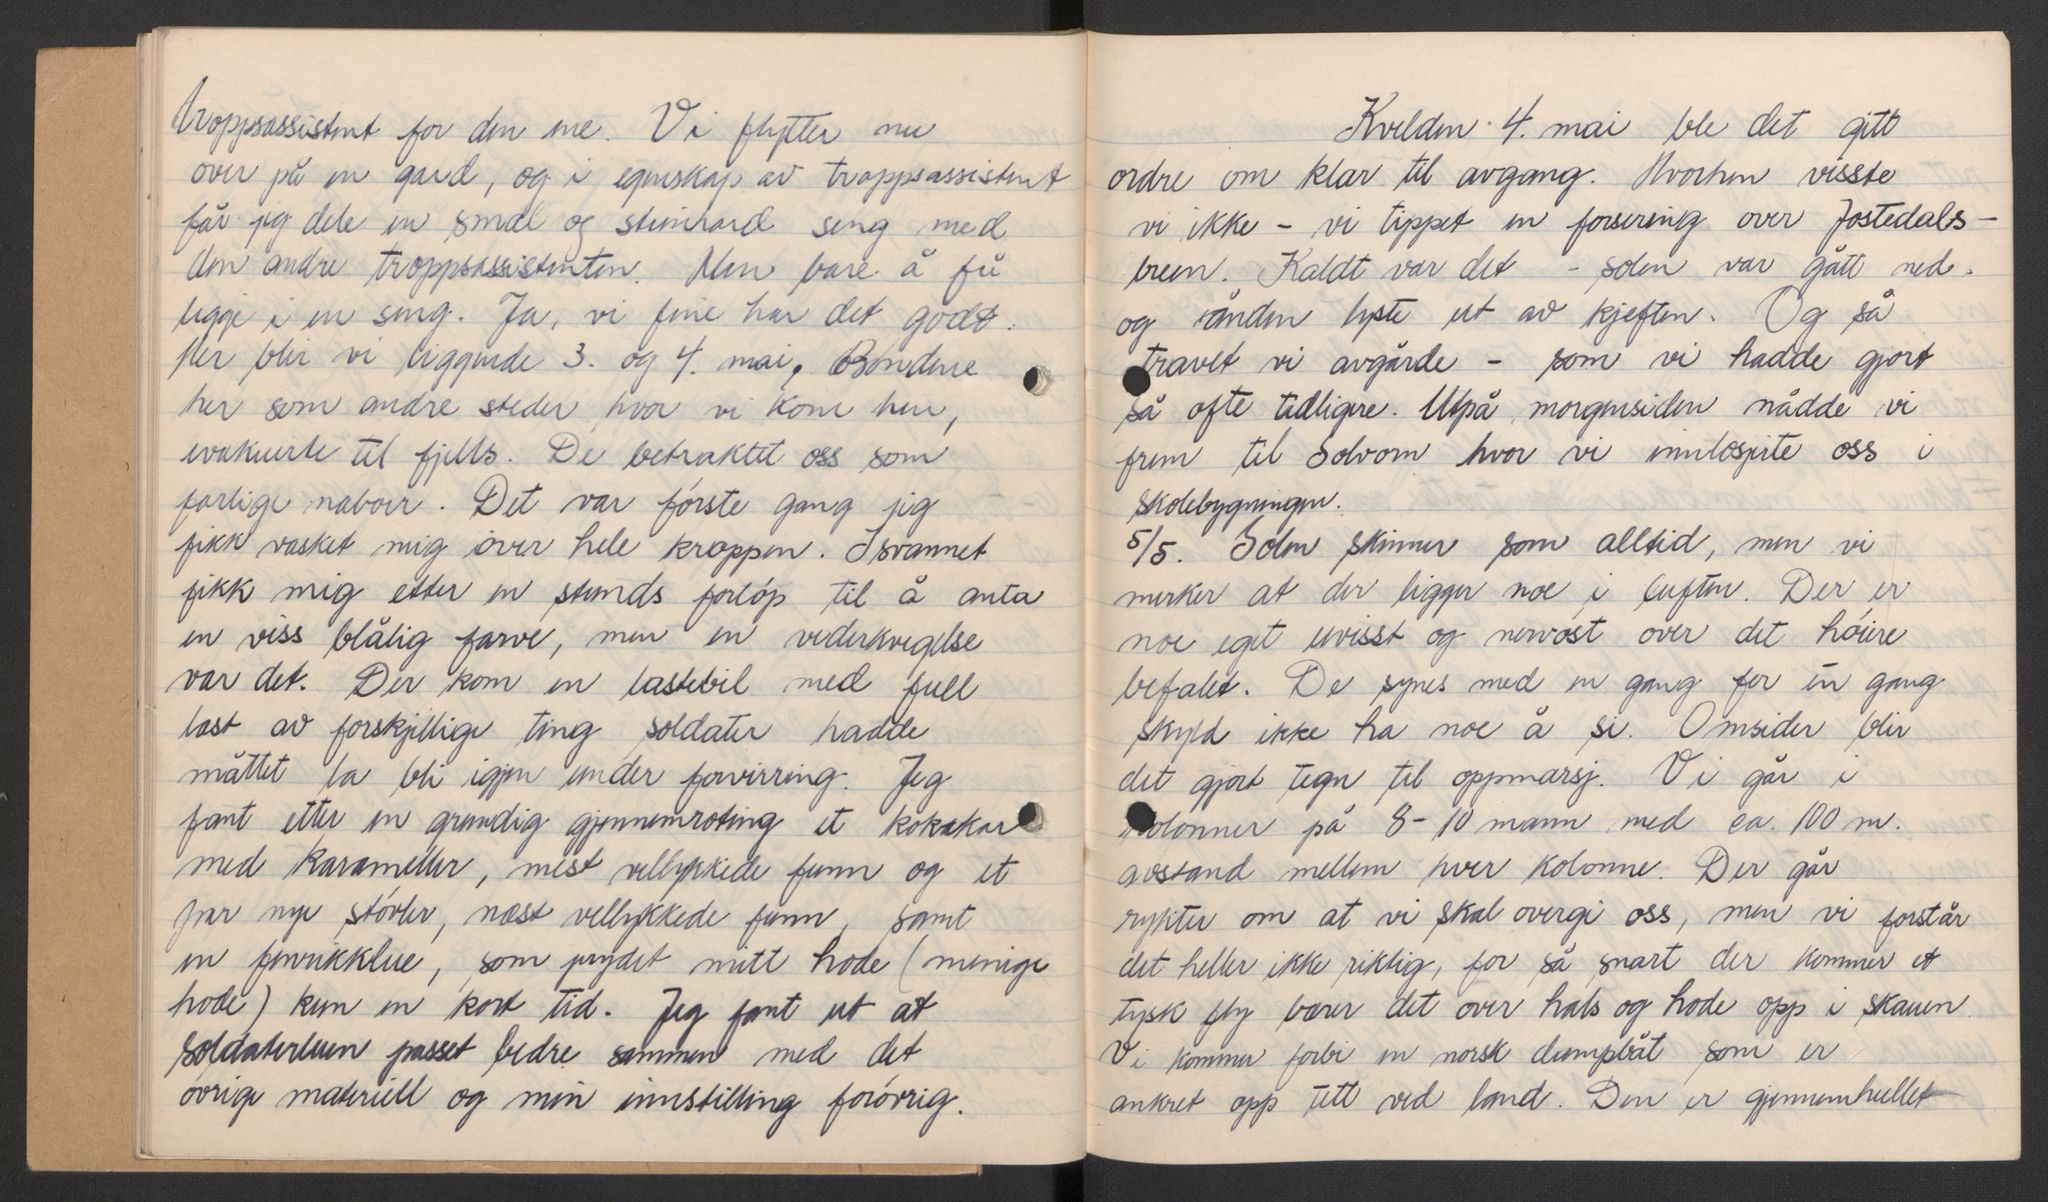 troppsassistent for den ene. Vi flytter nu
over på en gard, og i egenskap av troppsassistent
får jeg dele en smal og steinhard seng med
den andre troppsassistenten. Men bare å få
ligge i en seng. Ja, vi fine har det godt.
Her blir vi liggende 3. og 4. mai. Bøndene
her som andre steder hvor vi kom hen,
evakuerte til fjells. De betraktet oss som
farlige naboer. Det var første gang jeg
fikk vasket mig over hele kroppen. Isvannet
fikk mig etter en stunds forløp til å anta
en viss blålig farve, men en vederkvegelse
var det. Der kom en lastebil med full
last av forskjellige ting soldater hadde
måttet la bli igjen under forvirring. Jeg
fant etter en grundig gjennemroting et kokekar
med karameller, mest vellykkede funn og et
par nye støvler, næst vellykkede funn, samt
en fenrikklue, som prydet mitt hode (menige
hode) kun en kort tid. Jeg fant ut at
soldaterluen passet bedre sammen med det
øvrige materiell og min innstilling forøvrig.
Kvelden 4. mai ble det gitt
ordre om klar til avgang. Hvorhen visste
vi ikke – vi tippet en forsering over Jostedals-
breen. Kaldt var det – solen var gått ned.
og ånden lyste ut av kjeften. Og så
travet vi avgårde – som vi hadde gjort
så ofte tidligere. Utpå morgensiden nådde vi
frem til Solvorn hvor vi innlosjerte oss i
skolebygningen.
5/5. Solen skinner som alltid, men vi
merker at der ligger noe i luften. Der er
noe eget uvisst og nervøst over det høiere
befalet. De synes med en gang for en gang
skyld ikke ha noe å si. Omsider blir
det gjort tegn til oppmarsj. Vi går i
kolonner på 8-10 mann med ca. 100 m.
avstand mellem hver kolonne. Der går
rykter om at vi skal overgi oss, men vi forstår
det heller ikke riktig, for så snart der kommer et
tysk fly bærer det over hals og hode opp i skauen.
Vi kommer forbi en norsk dampbåt som er
ankret opp tett ved land. Den er gjennemhullet